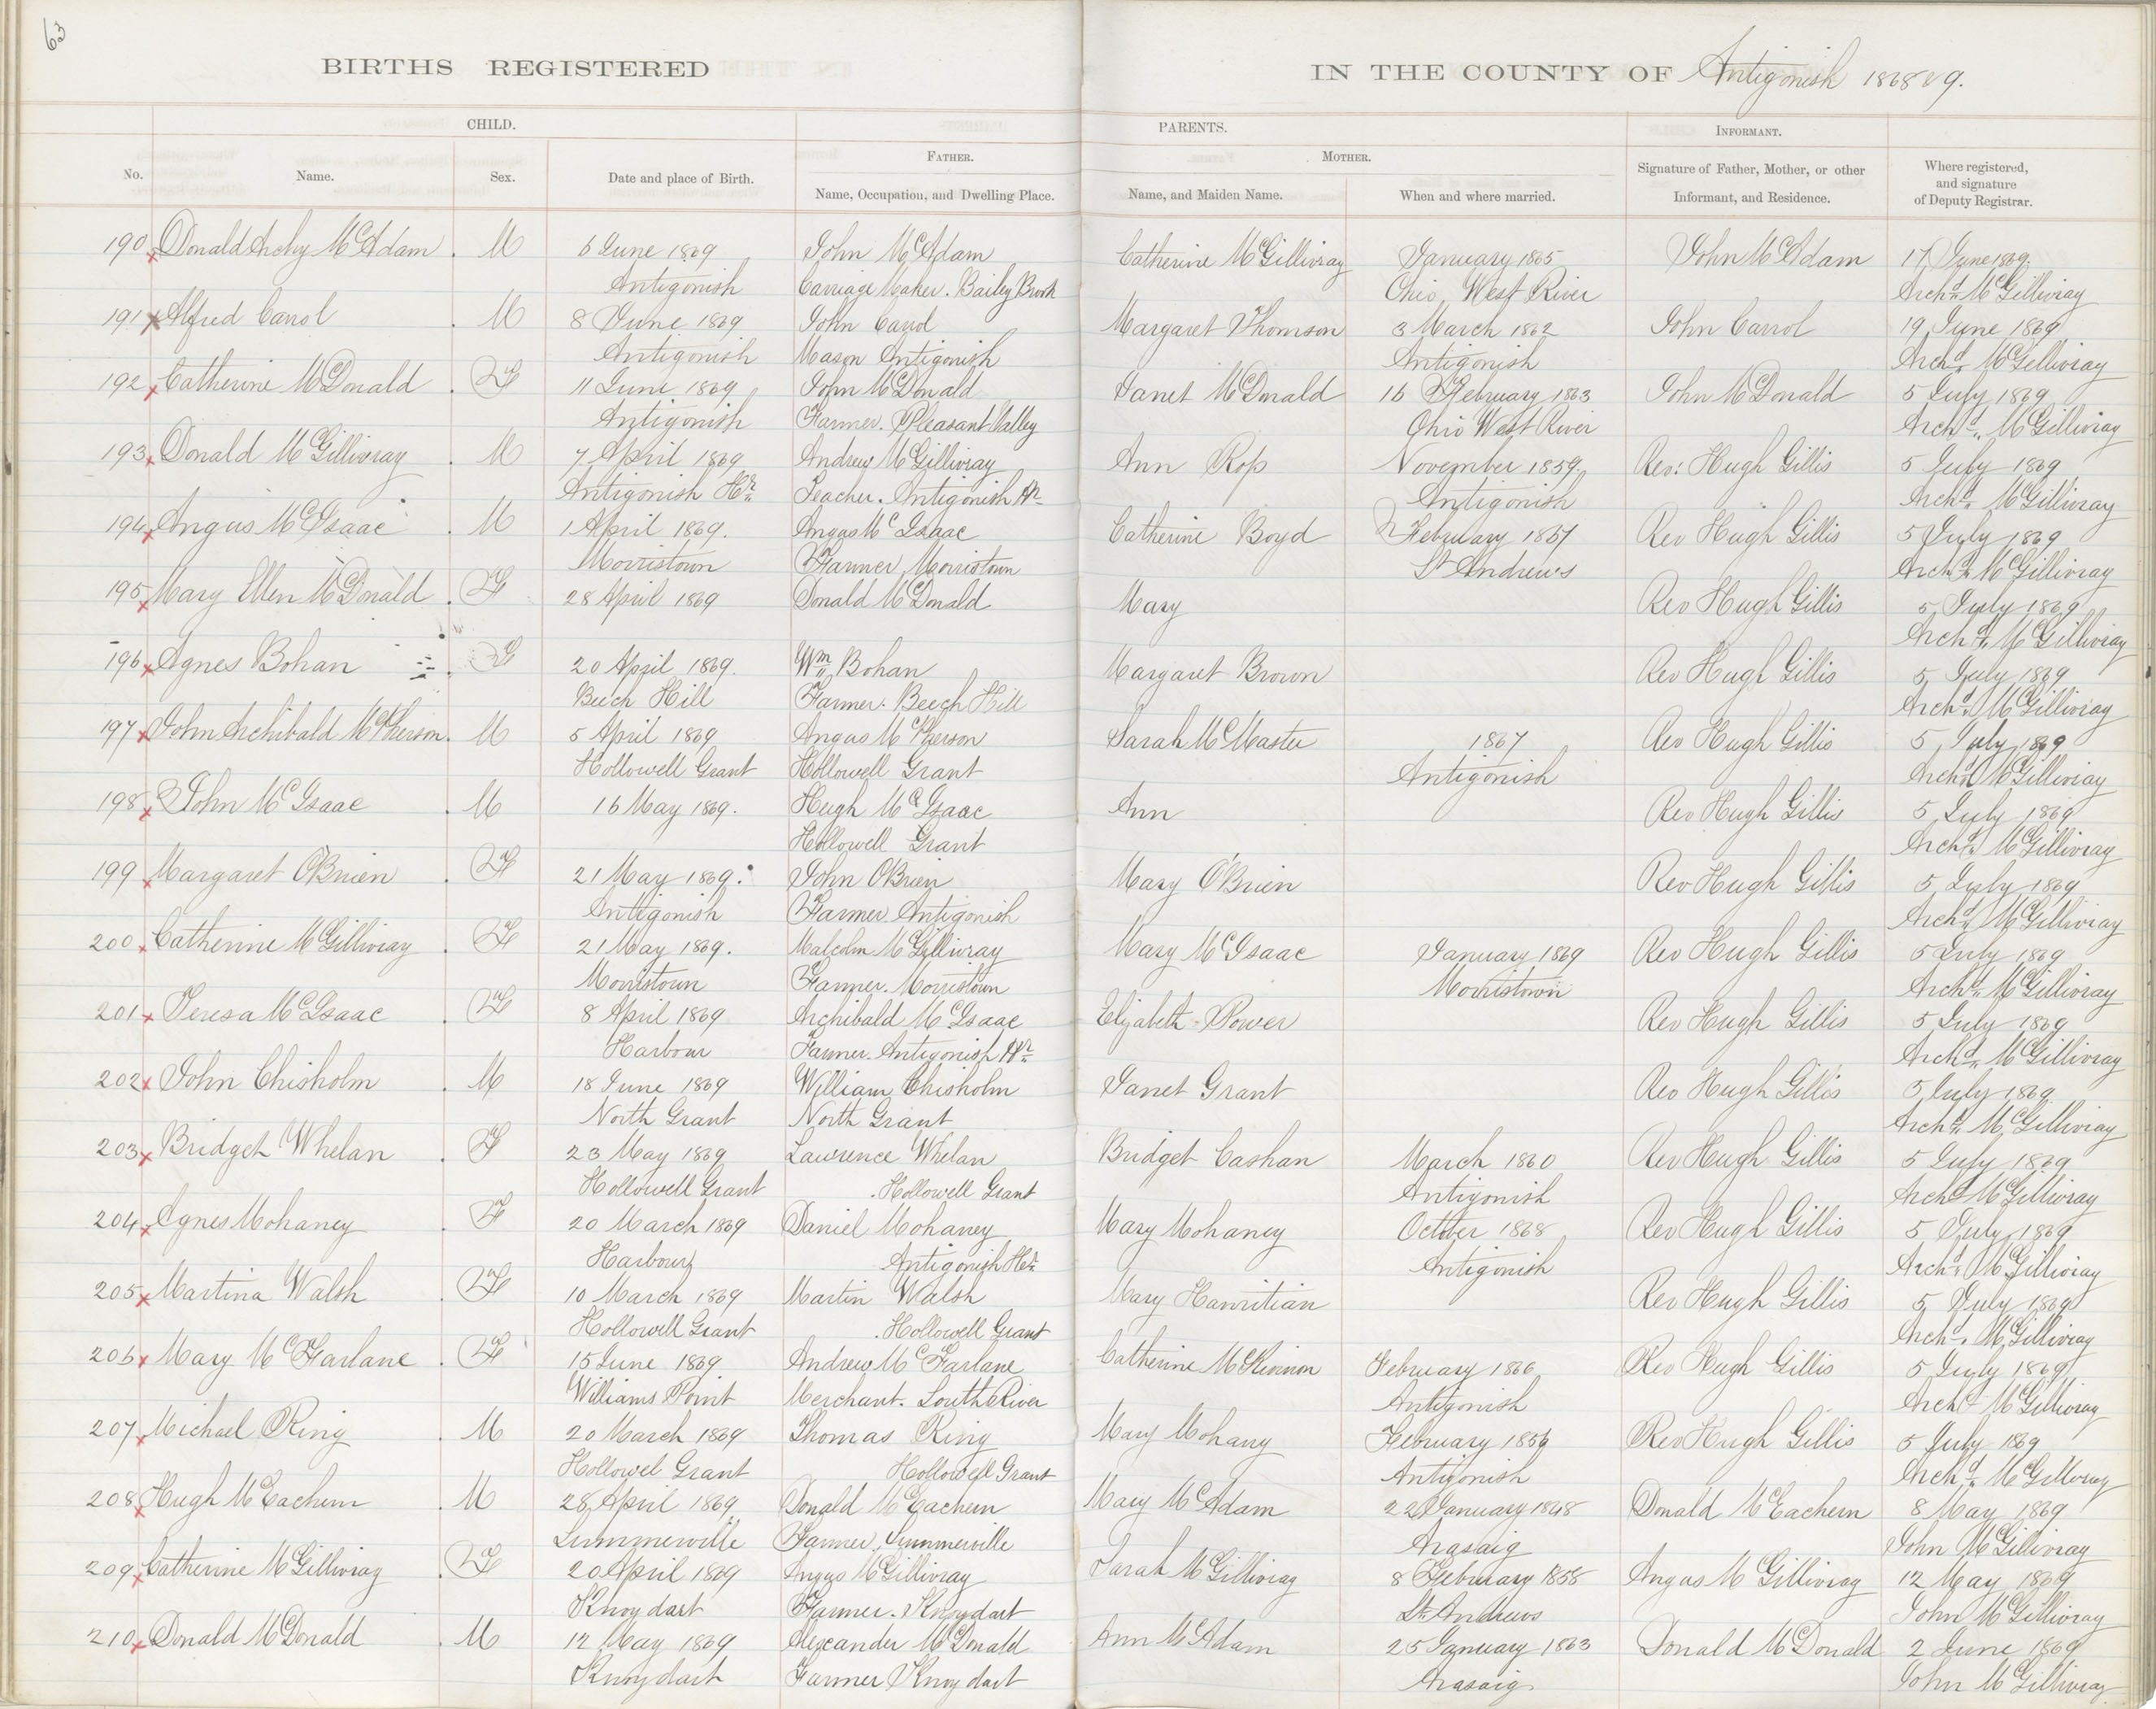 63
BIRTHS REGISTERED IN THE COUNTY OF Antigonish 1868 & 9.
CHILD. PARENTS. INFORMANT.
FATHER. MOTHER.
No. Name. Sex. Date and place of Birth. Name, Occupation, and Dwelling Place. Name, and Maiden Name. When and where married. Signature of Father, Mother, or other Informant, and Residence. Where registered, and signature of Deputy Registrar.
190 Donald Archy McAdam . M 6 June 1869 John McAdam Catherine McGillivray January 1865 John McAdam 17 June 1869.
Antigonish Carriage Maker. Bailey Brook Ohio West River Archd McGillivray
191 Alfred Carrol . M 8 June 1869 John Carrol Margaret Thomson 3 March 1862 John Carrol 19 June 1869
Antigonish Mason Antigonish Antigonish Archd McGillivray
192 Catherine McDonald . F 11 June 1869 John McDonald Janet McDonald 16 February 1863 John McDonald 5 July 1869
Antigonish Farmer. Pleasant Valley Ohio West River Archd McGillivray
193 Donald McGillivray . M 7 April 1869 Andrew McGillivray Ann Ross November 1859. Rev: Hugh Gillis 5 July 1869
Antigonish Hr Teacher. Antigonish Hr Antigonish Archd McGillivray
194 Angus McIsaac . M 1 April 1869. Angus McIsaac Catherine Boyd February 1857 Rev Hugh Gillis 5 July 1869
Morristown Farmer Morristown St Andrew's Archd McGillivray
195 Mary Ellen McDonald . F 28 April 1869 Donald McDonald Mary Rev Hugh Gillis 5 July 1869
Archd McGillivray
196 Agnes Bohan . F 20 April 1869. Wm Bohan Margaret Brown Rev Hugh Gillis 5 July 1869
Beech Hill Farmer. Beech Hill Archd McGillivray
197 John Archibald McPherson . M 5 April 1869 Angus McPherson Sarah McMaster 1867 Rev Hugh Gillis 5 July 1869
Hollowell Grant Hollowell Grant Antigonish Archd McGillivray
198 John McIsaac . M 16 May 1869. Hugh McIsaac Ann Rev Hugh Gillis 5 July 1869
Hollowell Grant Archd McGillivray
199 Margaret O'Brien . F 21 May 1869. John O'Brien Mary O'Brien Rev Hugh Gillis 5 July 1869
Antigonish Farmer Antigonish Archd McGillivray
200 Catherine McGillivray . F 21 May 1869. Malcolm McGillivray Mary McIsaac January 1869 Rev Hugh Gillis 5 July 1869
Morristown Farmer. Morristown Morristown Archd McGillivray
201 Teresa McIsaac . F 8 April 1869 Archibald McIsaac Elizabeth Power Rev Hugh Gillis 5 July 1869
Harbour Farmer. Antigonish Hr Archd McGillivray
202 John Chisholm . M 18 June 1869 William Chisholm Janet Grant Rev Hugh Gillis 5 July 1869
North Grant North Grant Archd McGillivray
203 Bridget Whelan . F 23 May 1869 Lawrence Whelan Bridget Cashan March 1860 Rev Hugh Gillis 5 July 1869
Hollowell Grant Hollowell Grant Antigonish Archd McGillivray
204 Agnes Mohaney . F 20 March 1869 Daniel Mohaney Mary Mohaney October 1868 Rev Hugh Gillis 5 July 1869
Harbour Antigonish Hr Antigonish Archd McGillivray
205 Martina Walsh . F 10 March 1869 Martin Walsh Mary Rev Hugh Gillis 5 July 1869
Hollowell Grant Hollowell Grant Archd McGillivray
206 Mary McFarlane . F 15 June 1869 Andrew McFarlane Catherine McKinnon February 1866 Rev Hugh Gillis 5 July 1869
Williams Point Merchant. South River Antigonish Archd McGillivray
207 Michael Ring . M 20 March 1869 Thomas Ring Mary Mohany February 1856 Rev Hugh Gillis 5 July 1869
Hollowel Grant Hollowell Grant Antigonish Archd McGillivray
208 Hugh McEachern . M 28 April 1869 Donald McEachern Mary McAdam 22 January 1848 Donald McEachern 8 May 1869
Summerville Farmer, Summerville Arasaig John McGillivray
209 Catherine McGillivray . F 20 April 1869 Angus McGillivray Sarah McGillivray 8 February 1858 Angus McGillivray 12 May 1869
Knoydart Farmer. Knoydart St Andrews John McGillivray
210 Donald McDonald . M 12 May 1869 Alexander McDonald Ann McAdam 25 January 1863 Donald McDonald 2 June 1869
Knoydart Farmer Knoydart Arasaig John McGillivray